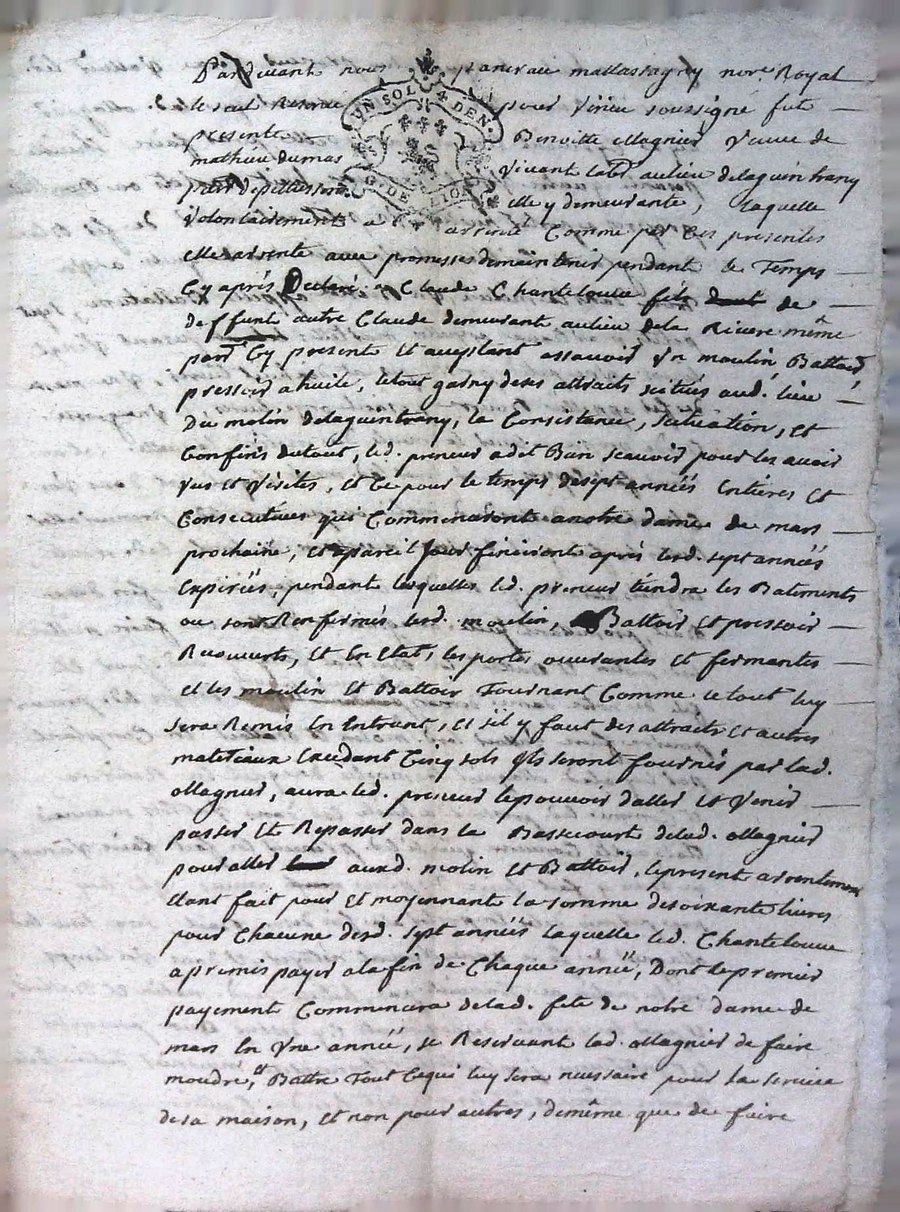 Pardevant nous pancrace mattassagny nore Royal
le seul Reservé pour Virieu soussigné fut
presente Benoitte Magnier Veuve de
mathieu dumas Vivant labr au lieu delaguintrany
parr de pellussin elle y demeurante, laquelle
Volontairement a arrenté Comme par Ces presentes
elle arrente avec promesses demaintenir pendant le Temps
Cy aprés Declaré a Claude Chantelouve fils de
deffunt autre Claude demeurant aulieu dela Riviere même
parr Cy present Et acceptant assavoir Vn moulin Battoir,
pressoir a huile, letout garny deses attraits scitués aud. lieu
Du molin delaguintrany, la Consistance, scituation, et
Confins dutout, led. preneur a dit Bien scavoir pour les avoir
Vus et Visités, et Ce pour le temps desept années Entieres Et
Consecutives qui Commenceront anostre dame de mars
prochaine, et apareil Jour finiront aprés lesd. sept années
Expirées, pendant lesquelles led. preneur tiendra les Batiments
ou sont Renfermés lesd. moulin, Battoir Et pressoir
Recouverts, et En Etat, les portes ouvrantes et fermantes
et les moulin Et Battoir Tournant Comme letout luy
sera Remis En Entrant, et sil y faut des attraits et autres
materiaux Excedant Cinq sols ils seront fournis par lad.
Magnier, aura led. preneur lepouvoir daller et Venir
passer Et Repasser dans la Bassecourt delad. Magnier
pour aller auxd. molin et Battoir, lepresent arrentement
Etant fait pour et moyennant la somme desoixante livres
pour Chacune desd. sept années laquelle led. Chantelouve
a promis payer alafin de Chaque année, Dont lepremier
payement Commencera delad. fete de notre dame de
mars En Vne année, se Reservant lad. Magnier de faire
moudre, et Battre Tout Cequi luy sera necessaire pour la service
desa maison, et non pour autres, demême que de faire
UN SOL 4 DEN.
G. DE LION